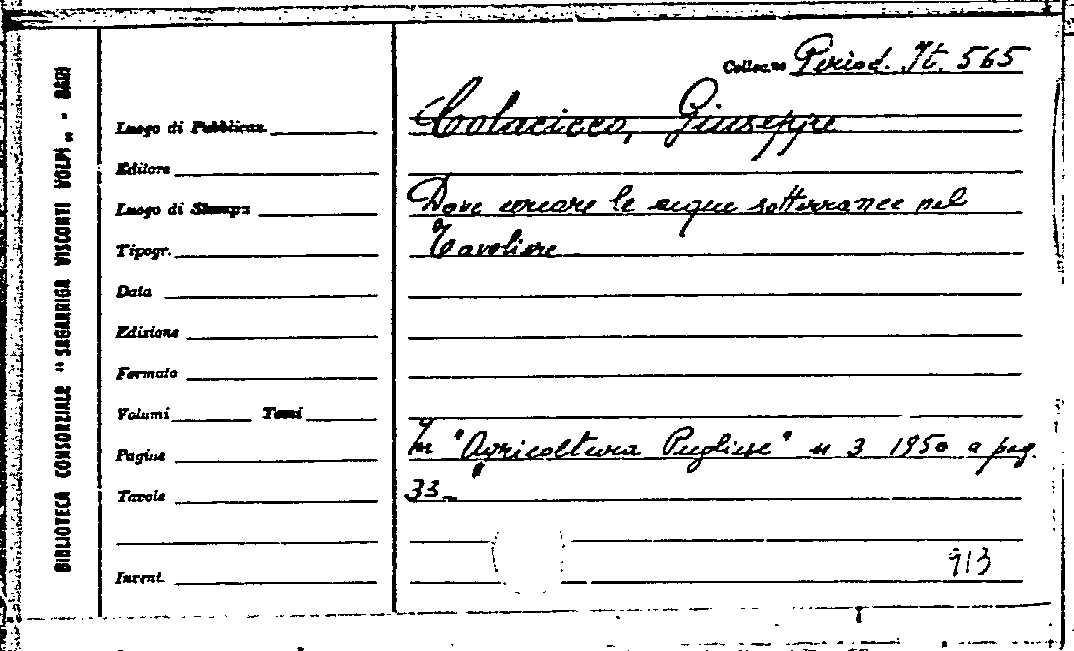 BIBLIOTECA CONSORZIALE "SAGARRIGA VISCONTI VOLPI„ - BARI
Colloc.ne Period. It. 565
Luogo di Pubblicaz.
Colacicco, Giuseppe
Editore
Luogo di Stampa
Dove cercare le acque sotterranee nel
Tipogr.
Tavoliere
Data
Edizione
Formato
Volumi Tomi
Pagine
In "Agricoltura Pugliese" n 3 1950 a pag.
Tavole
33_
913
Invent.